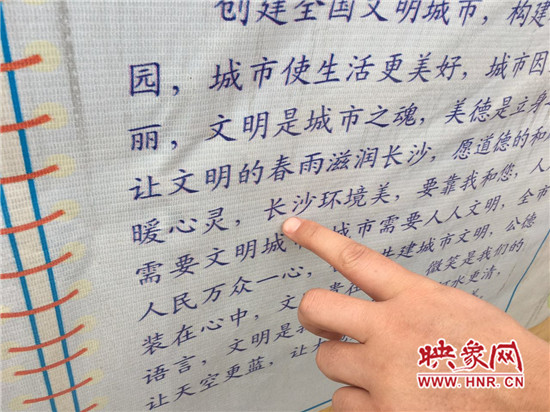 创建全国文明城市，构建
园，城市使生活更美好，城市因
丽，文明是城市之魂，美德是立身
让文明的春雨滋润长沙，愿道德的和
暖心灵，长沙环境美，要靠我和您，人
需要文明城 城市需要人人文明，全市
人民万众一心， 建城市文明，公德
装在心中，文 微笑是我们的
语言，文明是我 水更清，
让天空更蓝，让
映象网
WWW.HNR.CN